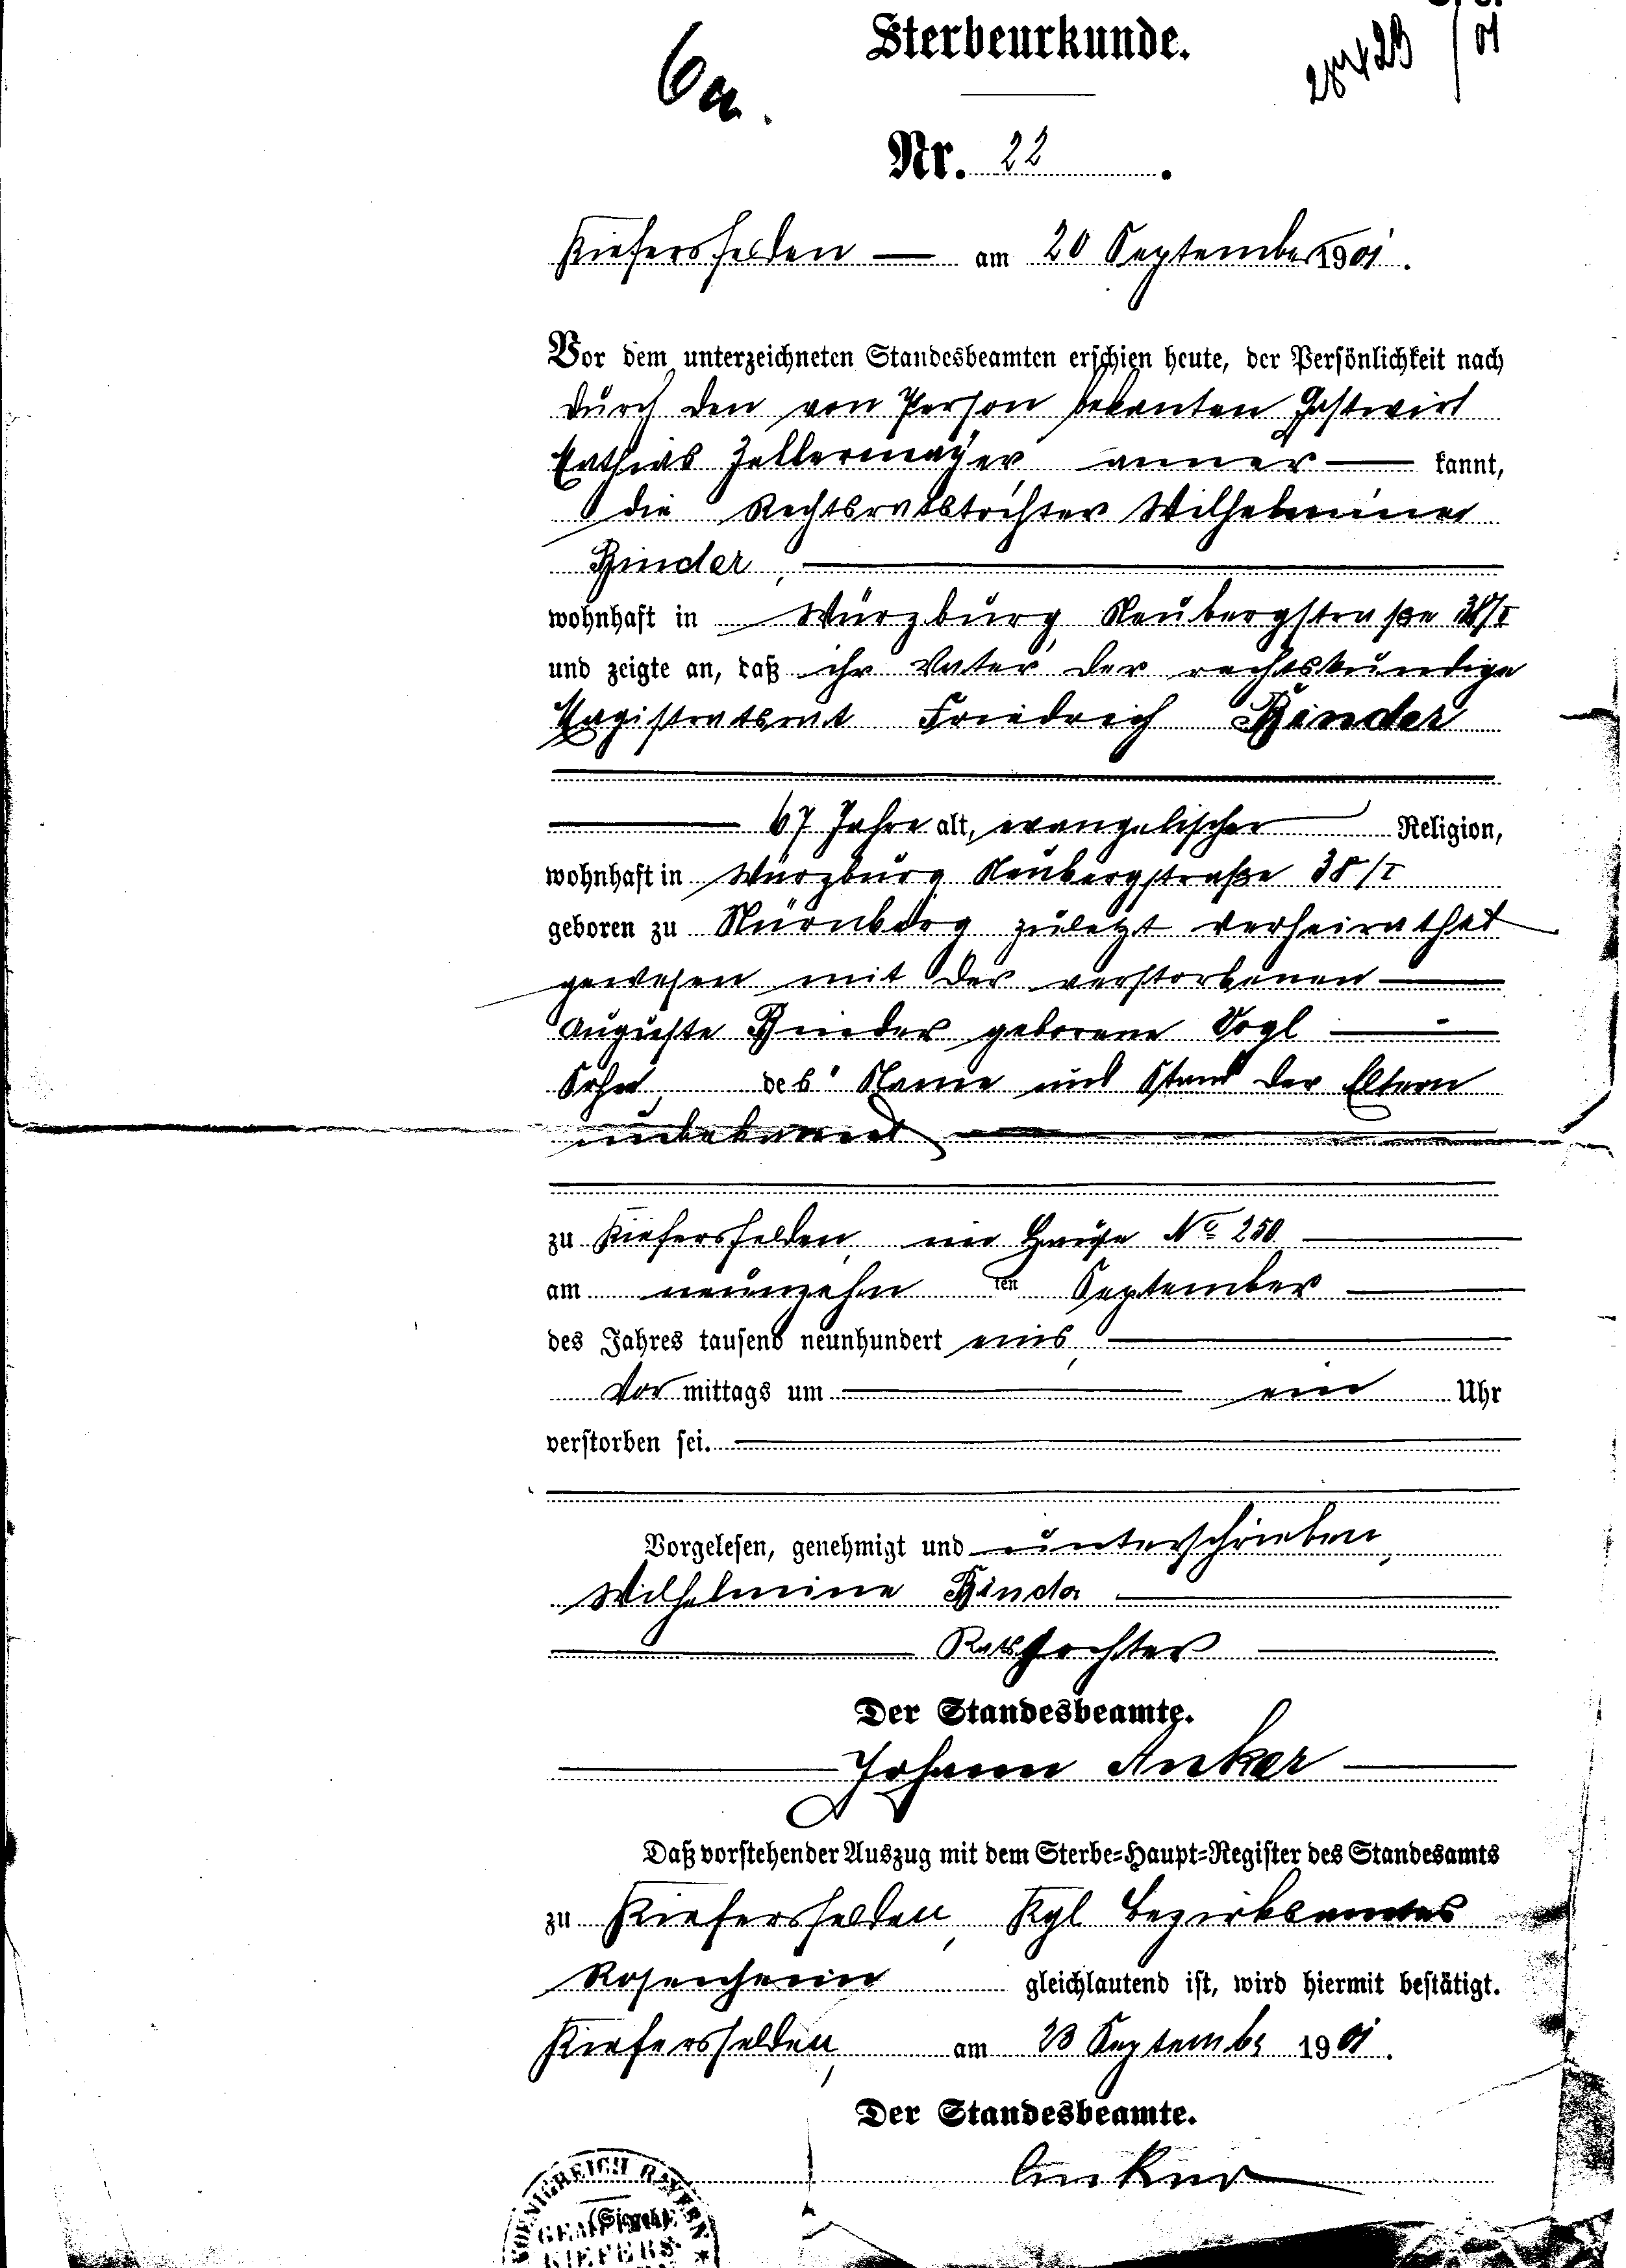 Sterbeurkunde.
6a.
Nr. 22.
Kiefersfelden — am 20 September 1901.
Vor dem unterzeichneten Standesbeamten erschien heute, der Persönlichkeit nach
durch den von Person bekanten Gastwirt
Mathias Zellermayer aner— kannt,
die Rechtsratstochter Wilhelmine
Binder,
wohnhaft in Würzburg Neubergstraße 38/I
und zeigte an, daß ihr Vater der rechtskundige
Magistratsrat Friedrich Binder
67 Jahre alt, evangelischer Religion,
wohnhaft in Würzburg Neubergstraße 38/I
geboren zu Nürnberg zuletzt verheirathet
gewesen mit der verstorbenen
Auguste Binder geborene Vogl
Sohn des Name und Stand der Eltern
unbekannt
zu Kiefersfelden, im Hause No 250
am neunzehn ten September
des Jahres tausend neunhundert eins,
Vor mittags um ein Uhr
verstorben sei.
Vorgelesen, genehmigt und unterschrieben,
Wilhelmine Binder
Ratstochter
Der Standesbeamte.
Johann Anker
Daß vorstehender Auszug mit dem Sterbe-Haupt-Register des Standesamts
zu Kiefersfelden, Kgl Bezirksamtes
Rosenheim gleichlautend ist, wird hiermit bestätigt.
Kiefersfelden, am 23 September 1901.
Der Standesbeamte.
Anker
KOENIGREICH BAYERN
(Siegel)
GEMEINDE
KIEFERS-